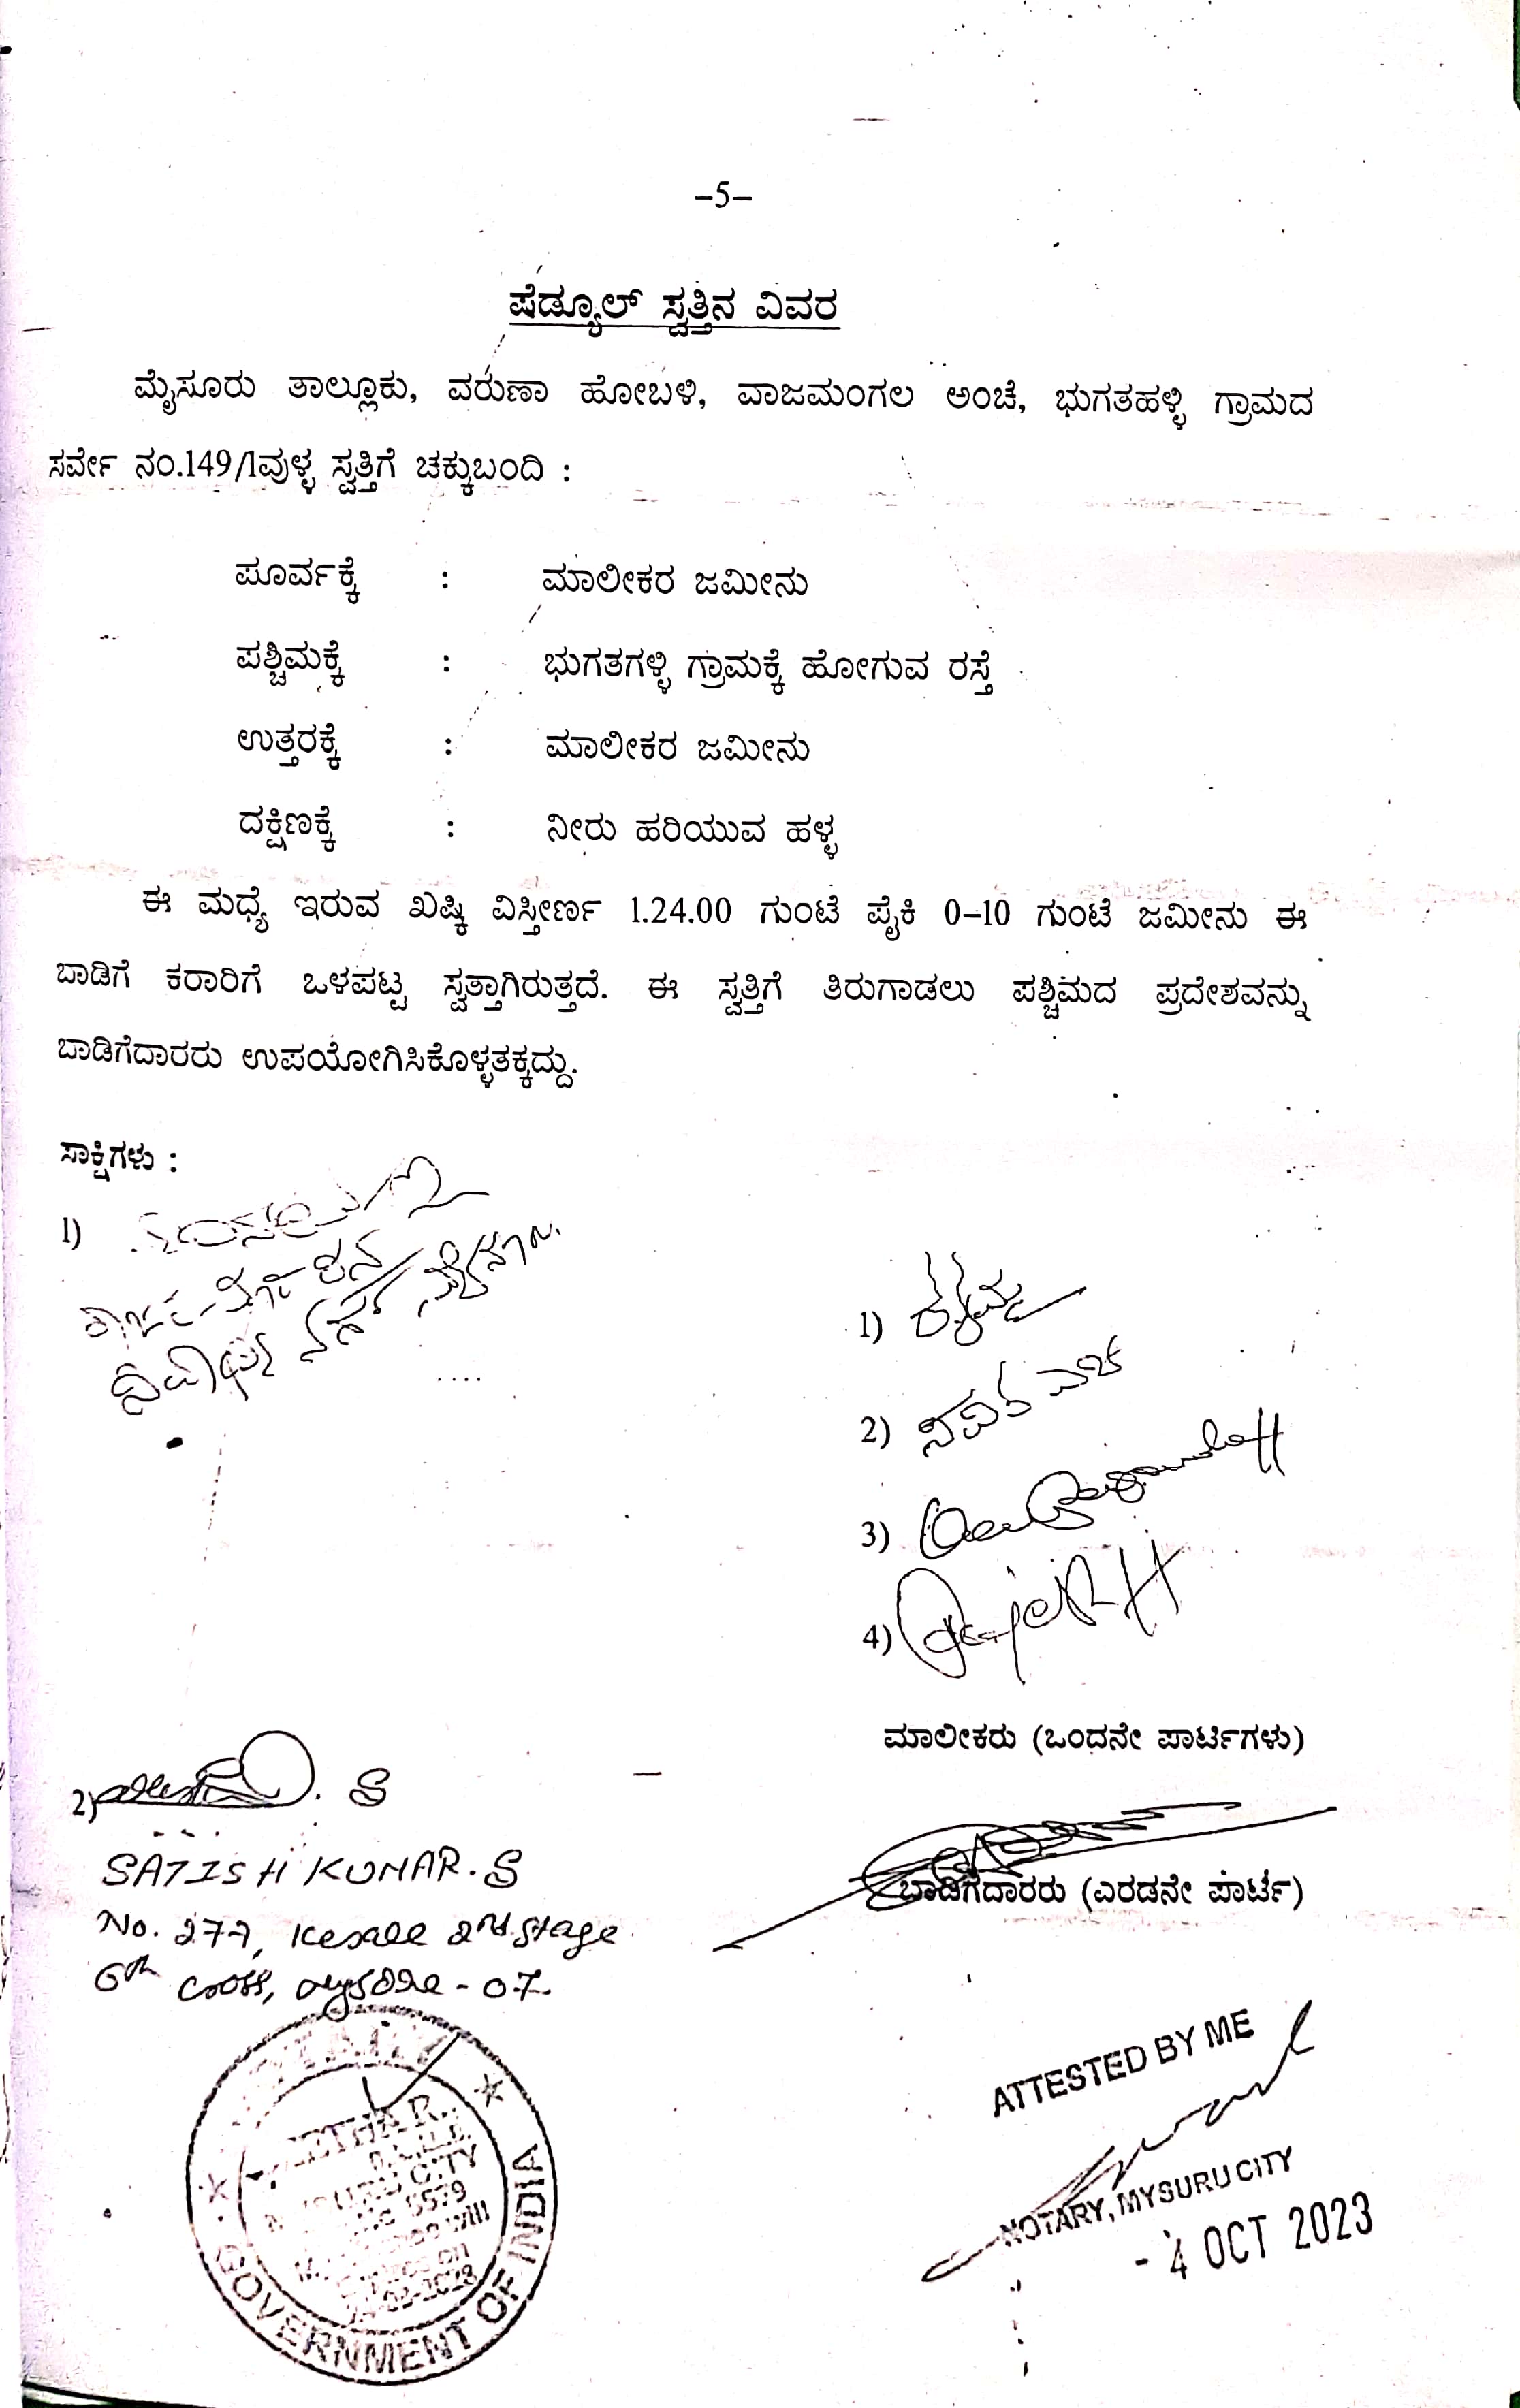 –5–
ಷೆಡ್ಯೂಲ್ ಸ್ವತ್ತಿನ ವಿವರ
ಮೈಸೂರು ತಾಲ್ಲೂಕು, ವರುಣಾ ಹೋಬಳಿ, ವಾಜಮಂಗಲ ಅಂಚೆ, ಭುಗತಹಳ್ಳಿ ಗ್ರಾಮದ
ಸರ್ವೇ ನಂ.149/1ವುಳ್ಳ ಸ್ವತ್ತಿಗೆ ಚಕ್ಕುಬಂದಿ :
ಪೂರ್ವಕ್ಕೆ : ಮಾಲೀಕರ ಜಮೀನು
ಪಶ್ಚಿಮಕ್ಕೆ : ಭುಗತಗಳ್ಳಿ ಗ್ರಾಮಕ್ಕೆ ಹೋಗುವ ರಸ್ತೆ
ಉತ್ತರಕ್ಕೆ : ಮಾಲೀಕರ ಜಮೀನು
ದಕ್ಷಿಣಕ್ಕೆ : ನೀರು ಹರಿಯುವ ಹಳ್ಳ
ಈ ಮಧ್ಯೆ ಇರುವ ಖುಷ್ಕಿ ವಿಸ್ತೀರ್ಣ 1.24.00 ಗುಂಟೆ ಪೈಕಿ 0–10 ಗುಂಟೆ ಜಮೀನು ಈ
ಬಾಡಿಗೆ ಕರಾರಿಗೆ ಒಳಪಟ್ಟ ಸ್ವತ್ತಾಗಿರುತ್ತದೆ. ಈ ಸ್ವತ್ತಿಗೆ ತಿರುಗಾಡಲು ಪಶ್ಚಿಮದ ಪ್ರದೇಶವನ್ನು
ಬಾಡಿಗೆದಾರರು ಉಪಯೋಗಿಸಿಕೊಳ್ಳತಕ್ಕದ್ದು.
ಸಾಕ್ಷಿಗಳು :
1)
1)
2)
3)
4)
ಮಾಲೀಕರು (ಒಂದನೇ ಪಾರ್ಟಿಗಳು)
2) S
SATISH KUMAR.S
No. 277, Kesare 2nd stage
6th cross, mysore - 07.
ಬಾಡಿಗೆದಾರರು (ಎರಡನೇ ಪಾರ್ಟಿ)
ATTESTED BY ME
NOTARY, MYSURU CITY
- 4 OCT 2023
GOVERNMENT OF INDIA